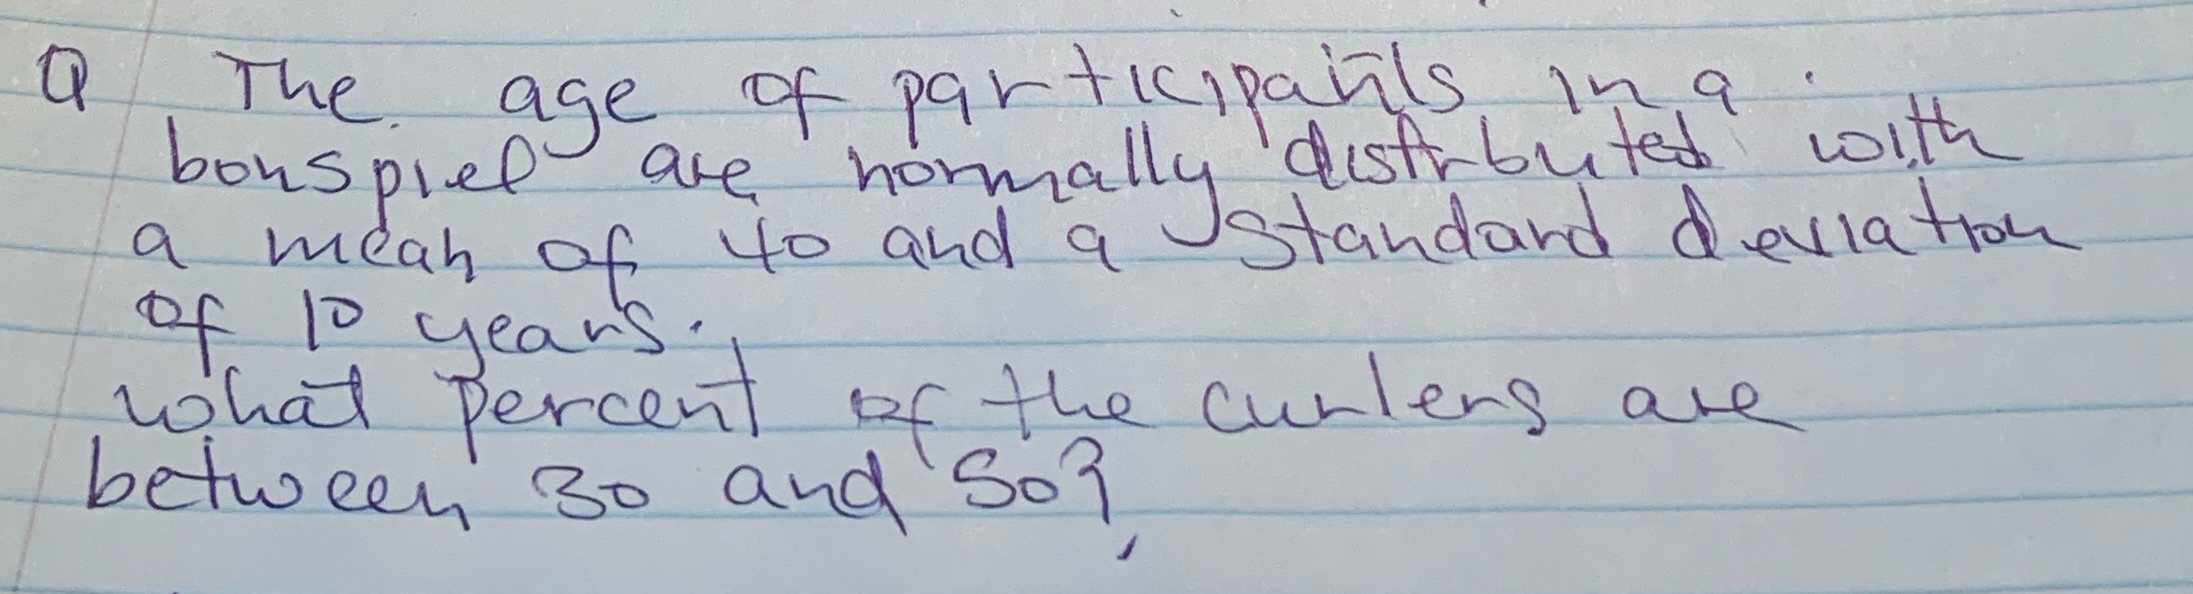 Q The age of participants in a
bonspiel are normally distributed with
a mean of 40 and a standard deviation
of 10 years.
what percent of the curlers are
between 30 and 50?